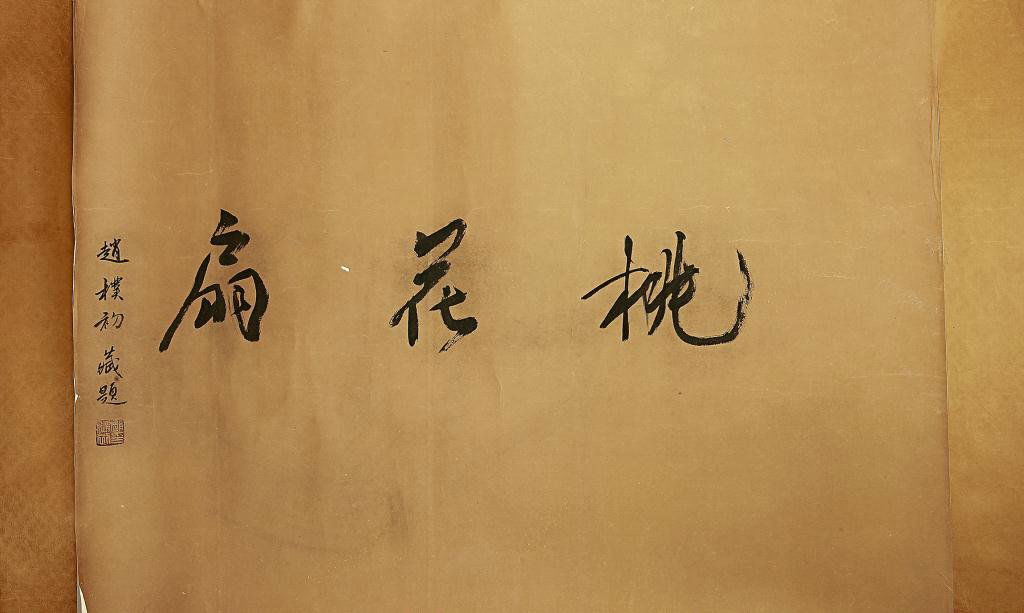 桃花扇
趙樸初藏題